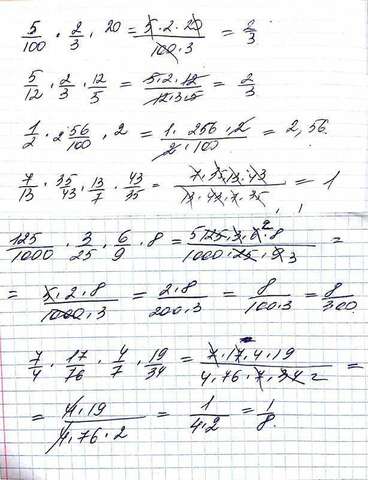 5/100 · 2/3 · 20 = 5·2·20/100·3 = 2/3
5/12 · 2/3 · 12/5 = 5·2·12/12·3·5 = 2/3
1/2 · 2 56/100 · 2 = 1·256·2/2·100 = 2,56.
7/13 · 35/43 · 13/7 · 43/35 = 7·35·13·43/13·43·7·35 = 1
125/1000 · 3/25 · 6/9 · 8 = 5 125·3·6 2·8/1000·25·9 3 =
= 5·2·8/1000·3 = 2·8/200·3 = 8/100·3 = 8/300.
7/4 · 17/76 · 4/7 · 19/34 = 7·17·4·19/4·76·7·34 2 =
= 4·19/4·76·2 = 1/4·2 = 1/8.